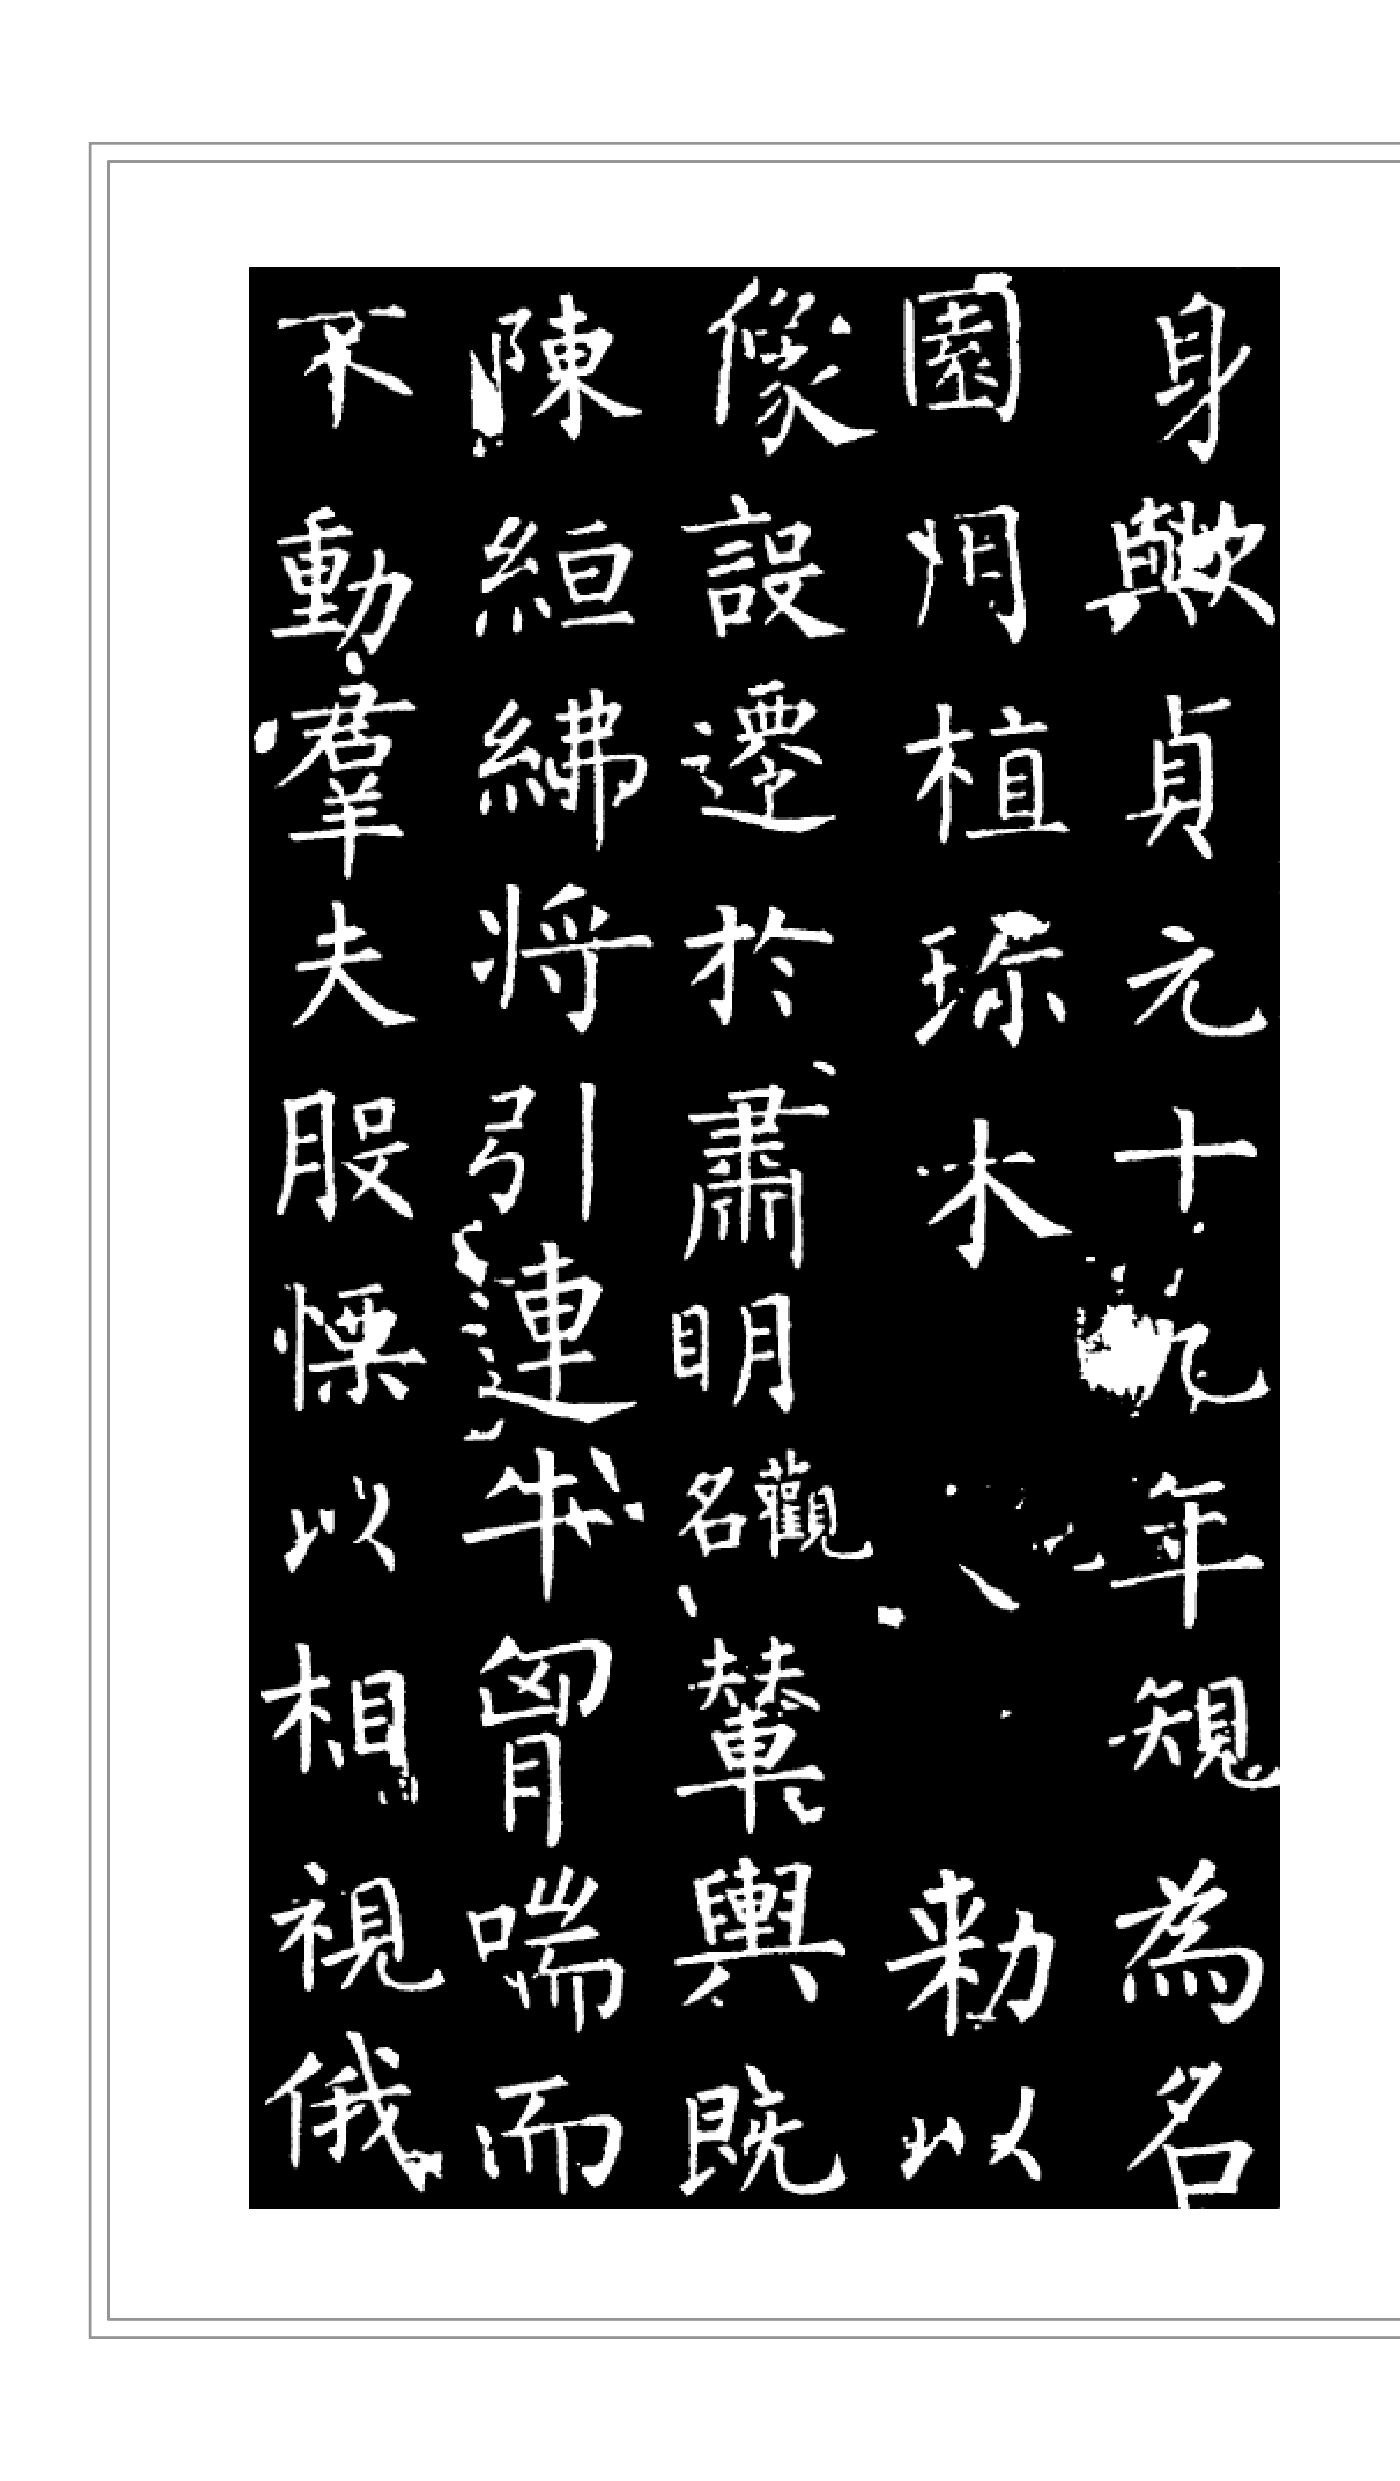 身歟貞元十九年規為名
園用植珎木 敕以
像設遷於肅明觀名輦輿既
陳絙紼將引連牛胷喘而
不動羣夫股慄以相視俄